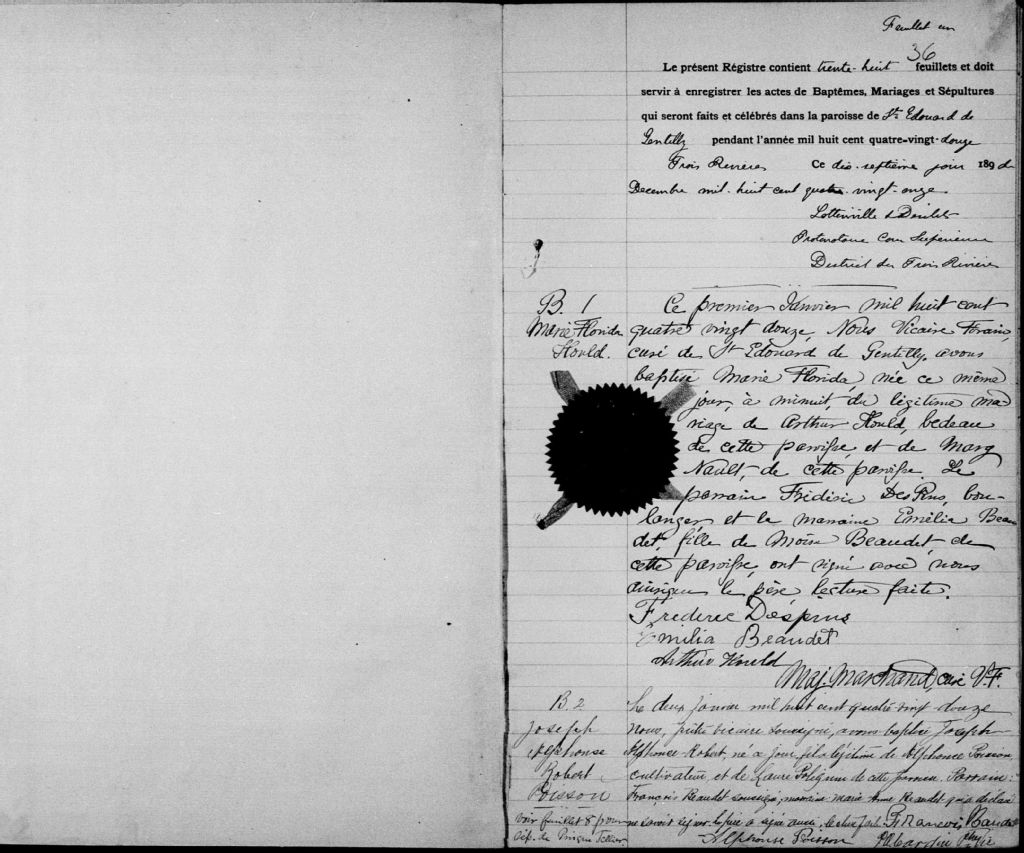 Feuillet un
36
Le présent Régistre contient trente-huit feuillets et doit
servir à enregistrer les actes de Baptêmes, Mariages et Sépultures
qui seront faits et célébrés dans la paroisse de St Edouard de
Gentilly pendant l'année mil huit cent quatre-vingt-douze
Trois Rivières Ce dix-septième jour 189
Decembre mil-huit cent quatre-vingt-onze
Protonotaire Cour Supérieure
District des Trois Rivières
B. 1
Marie Florida
Hould.
Ce premier Janvier mil huit cent
quatre vingt douze, Nous Vicaire Forain,
curé de St Edouard de Gentilly, avons
baptisé Marie Florida, née ce même
jour, à minuit, du légitime ma
riage de Arthur Hould, bedeau
de cette paroisse, et de Marg
Nault, de cette paroisse. Le
parrain Fréderic DesRus, bou-
langer, et la marraine Emilia Beau
det, fille de Moïse Beaudet, de
cette paroisse, ont signé avec nous
ainsique le père, lecture faite.
Frederec
Emilia Beaudet
Arthur Hould
Maj. Marchand, curé V.F.
B. 2
Joseph
Alphonse
Robert
Poisson
voir feuillet 8 pour
Le deux janvier mil huit cent quatre vingt douze
Nous, prêtre vicaire soussigné, avons baptisé Joseph
Alphonse-Robert, né ce jour, fils légitime de Alphonse Poisson,
cultivateur, et de Laure de cette paroisse. Parrain:
François Beaudet soussigné, marraine Marie Anne Beaudet qui a déclaré
ne savoir signer. Le père a signé avec, lecture faite. Francois Beaudet
Alphonse Poisson